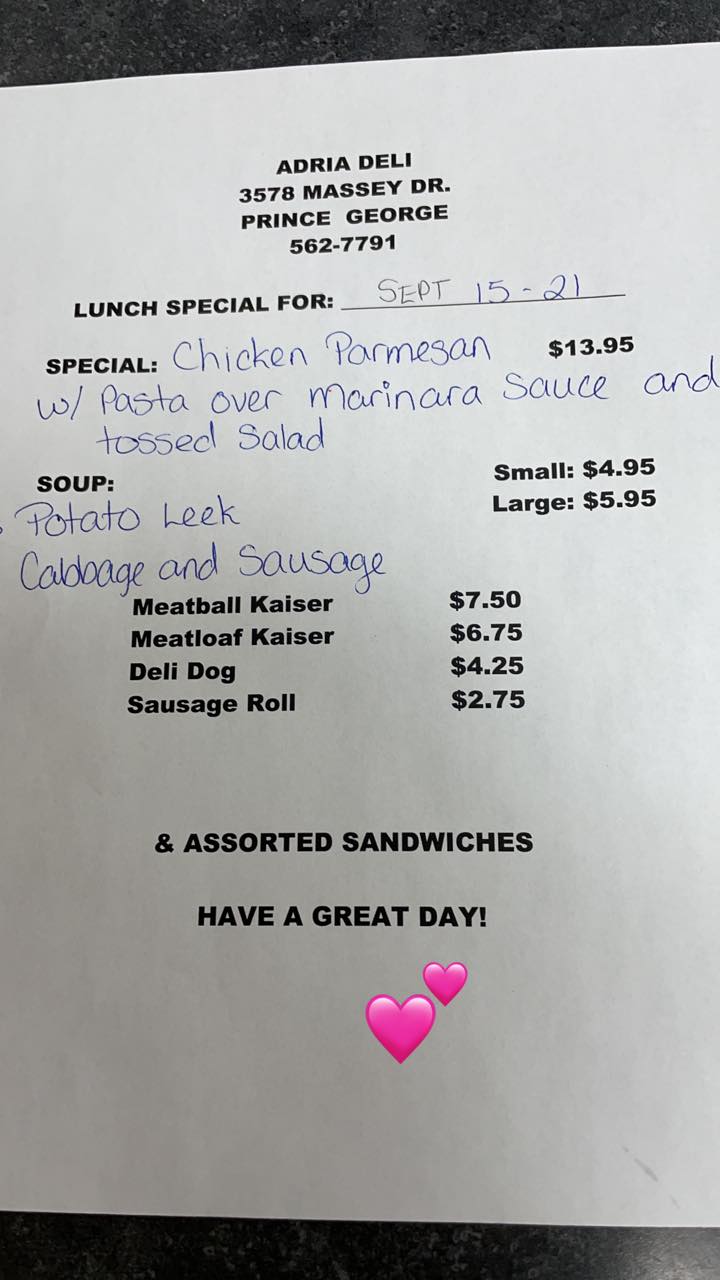 ADRIA DELI
3578 MASSEY DR.
PRINCE GEORGE
562-7791
LUNCH SPECIAL FOR: SEPT 15-21
SPECIAL: Chicken Parmesan $13.95
w/ Pasta over marinara sauce and
tossed Salad
SOUP: Small: $4.95
Large: $5.95
Potato Leek
Cabbage and Sausage
Meatball Kaiser $7.50
Meatloaf Kaiser $6.75
Deli Dog $4.25
Sausage Roll $2.75
& ASSORTED SANDWICHES
HAVE A GREAT DAY!